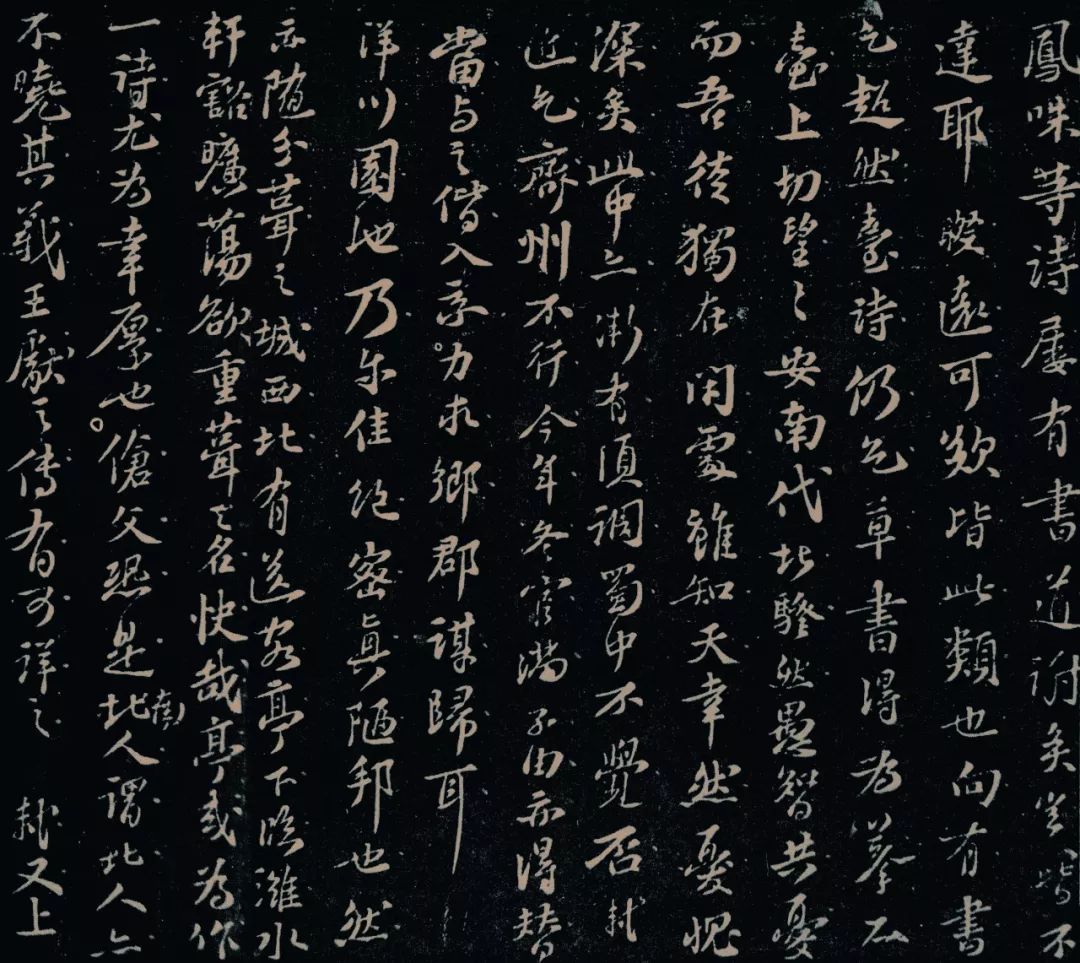 鳳咮等詩屢有書道謝矣豈皆不
達耶 暌遠可歎皆此類也向有書
乞超然臺詩仍乞草書得為摹石
臺上切望〻安南代北騷然愚智共憂
而吾徒獨在閑處雖知天幸然憂愧
深矣此中亦漸有須調蜀中不覺否軾
近乞齊州不行今年冬官滿子由亦得替
當与之偕入京力求鄉郡謀歸耳
洋川園池乃尔佳絕密真陋邦也然
亦隨分葺之城西北有送客亭下臨濰水
軒豁曠蕩欲重葺之名快哉亭或為作
一詩尤為幸厚也傖父恐是北南人謂北人亦
不曉其義王獻之傳有可詳之 軾又上